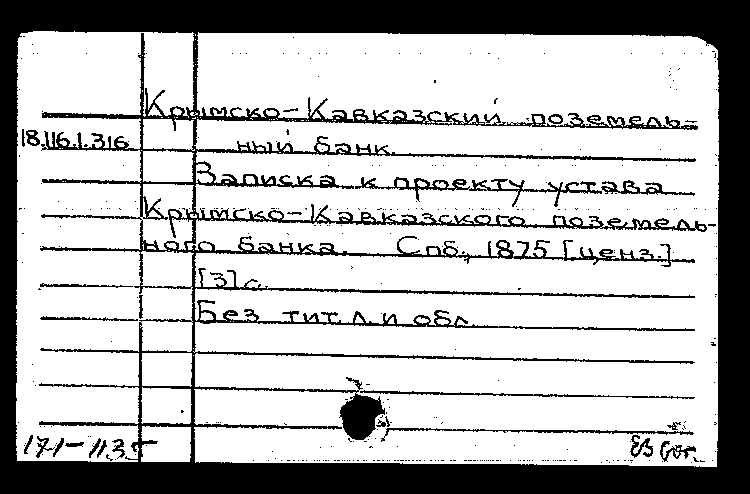 Крымско-Кавказский поземель-
18.116.1.316 ный банк.
Записка к проекту устава
Крымско-Кавказского поземель-
ного банка. Спб., 1875 [ценз.]
[3] с.
Без тит. л. и обл.
171-1135